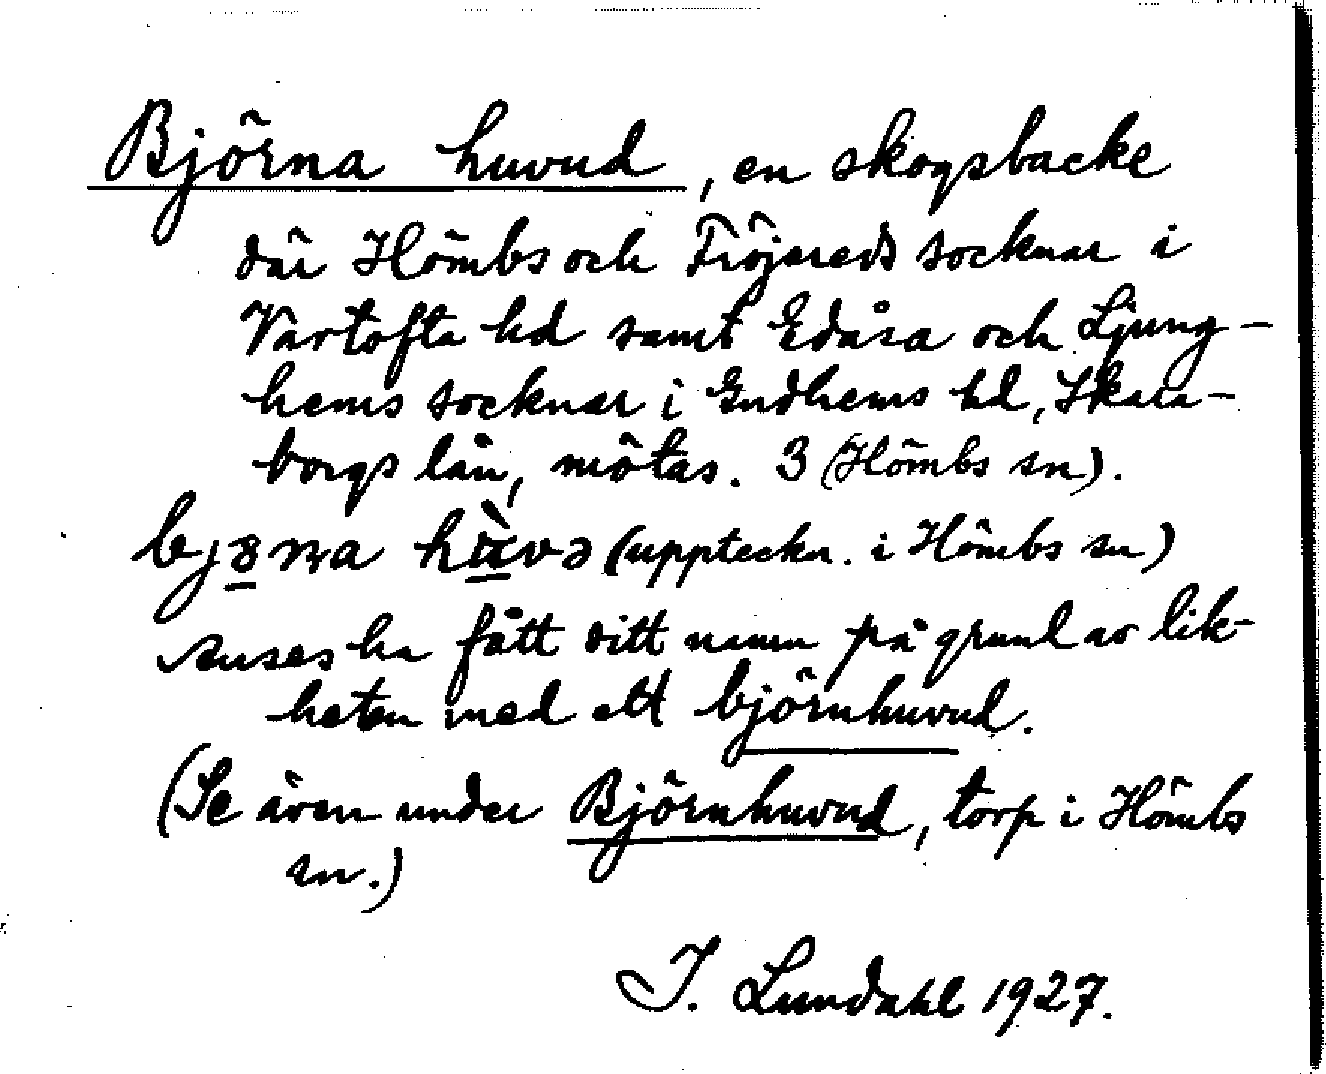 Björna huvud, en skogsbacke
där Hömbs och Fröjereds socknar i
Vartofta hd samt Edåsa och Ljung-
hems socknar i Gudhems hd, Skara-
borgs län, mötas. 3 (Hömbs sn).
(uppteckn. i Hömbs sn)
anses ha fått ditt namn på grund av lik-
heten med ett björnhuvud.
(Se även under Björnhuvud, torp i Hömbs
sn.)
I. Lundahl 1927.